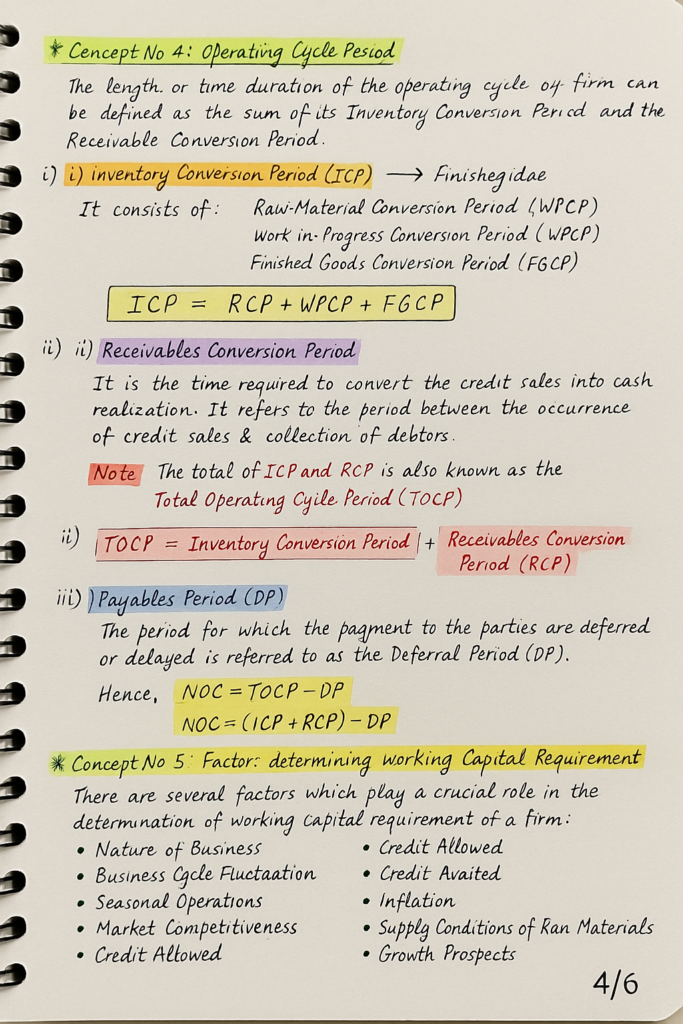 * Cencept No 4: Operating Cycle Pesiod
The length. or time duration of the operating cycle oy firm can
be defined as the sum of its Inventory Conversion Pericd and the
Receivable Conversion Period.
i) i) inventory Conversion Period (ICP) → Finishegidae
It consists of: Raw-Material Conversion Period (WPCP)
Work in-Progress Conversion Period (WPCP)
Finished Goods Conversion Period (FGCP)
ICP = RCP + WPCP + FGCP
ii) ii) Receivables Conversion Period
It is the time required to convert the credit sales into cash
realization. It refers to the period between the occurrence
of credit sales & collection of debtors.
Note The total of ICP and RCP is also known as the
Total Operating Cyile Period (TOCP)
ii) TOCP = Inventory Conversion Period + Receivables Conversion
Period (RCP)
iii) Payables Period (DP)
The period for which the pagment to the parties are deferred
or delayed is referred to as the Deferral Period (DP).
Hence, NOC = TOCP - DP
NOC = (ICP + RCP) - DP
* Concept No 5: Factor: determining working Capital Requirement
There are several factors which play a crucial role in the
determination of working capital requirement of a firm:
• Nature of Business
• Business Cgcle Fluctaation
• Seasonal Operations
• Market Competitiveness
• Credit Allowed
• Credit Allowed
• Credit Avaited
• Inflation
• Supply Conditions of Ran Materials
• Growth Prospects
4/6